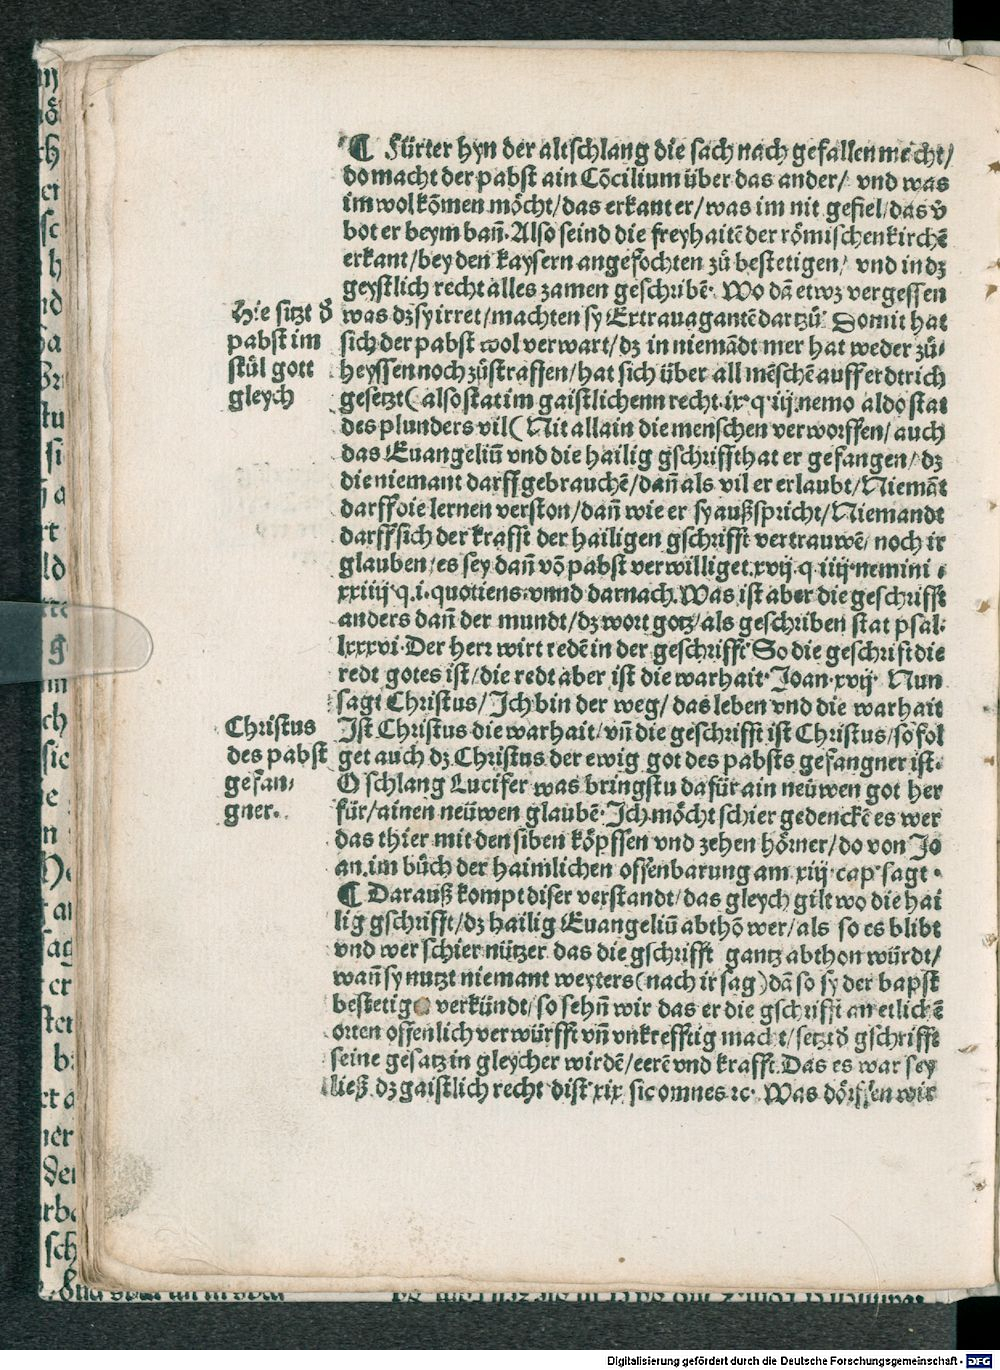 ¶ Fürter hyn der alt schlang die sach nach gefallen mecht/
do macht der pabst ain Cōcilium über das ander/ vnd was
im wol kōmen möcht/ das erkant er/ was im nit gefiel/ das v̄
bot er beym bañ. Also seind die freyhaitē der römischen kirchē
erkant/ bey den kaysern angefochten zů bestetigen/ vnd in dz
geystlich recht alles zamen geschribē. Wo dā etwz vergessen
Hie sitzt d̄
was dz sy irret/ machten sy Extrauagantē dartzů Domit hat
pabst im
sich der pabst wol verwart/ dz in niemādt mer hat weder zů
stůl gott
heyssen noch zůstraffen/ hat sich über all mēschē auff erdtrich
gleych
gesetzt( also stat im gaistlichenn recht. ix. q. iij. nemo aldo stat
des plunders vil( Nit allain die menschen verworffen/ auch
das Euangeliū vnd die hailig gschrifft hat er gefangen/ dz
die niemant darff gebrauchē/ dañ als vil er erlaubt/ Niemāt
darff die lernen verston/ dañ wie er sy außspricht/ Niemandt
darff sich der krafft der hailigen gschrifft vertrauwē/ noch ir
glauben/ es sey dañ vō pabst verwilliget. xvij. q. iiij. nemini.
xxiiij. q. i. quotiens. vnnd darnach. Was ist aber die geschrifft
anders dañ der mundt/ dz wort gotz/ als geschriben stat psal.
lxxxvi. Der herr wirt redē in der geschrifft So die geschrift die
redt gotes ist/ die redt aber ist die warhait. Joan. xvij. Nun
sagt Christus/ Ich bin der weg/ das leben vnd die warhait
Christus
Ist Christus die warhait/ vñ die geschrifft ist Christus/ so fol
des pabst
get auch dz Christus der ewig got des pabsts gefangner ist.
gefan,
O schlang Lucifer was bringstu dafür ain neüwen got her
gner.
für/ ainen neüwen glaubē. Ich möcht schier gedenckē es wer
das thier mit den siben köpffen vnd zehen hörner/ do von Jo
an. im bůch der haimlichen offenbarung am xiij. cap. sagt.
¶ Darauß kompt diser verstandt/ das gleych gilt wo die hai
lig gschrifft/ dz hailig Euangeliū abthō wer/ als so es blibt
vnd wer schier nützer das die gschrifft gantz abthon würdt/
wañ sy nutzt niemant weyters( nach ir sag) dā so sy der bapst
bestetig verkündt/ so sehñ wir das er die gschrifft an etlichē
orten offenlich verwürfft vñ vnkrefftig macht/ setzt d̄ gschrifft
seine gesatz in gleycher wirdē/ eerē vnd krafft. Das es war sey
ließ dz gaistlich recht dist xix sic omnes ꝛc. Was dörffen wir
Digitalisierung gefördert durch die Deutsche Forschungsgemeinschaft - DFG